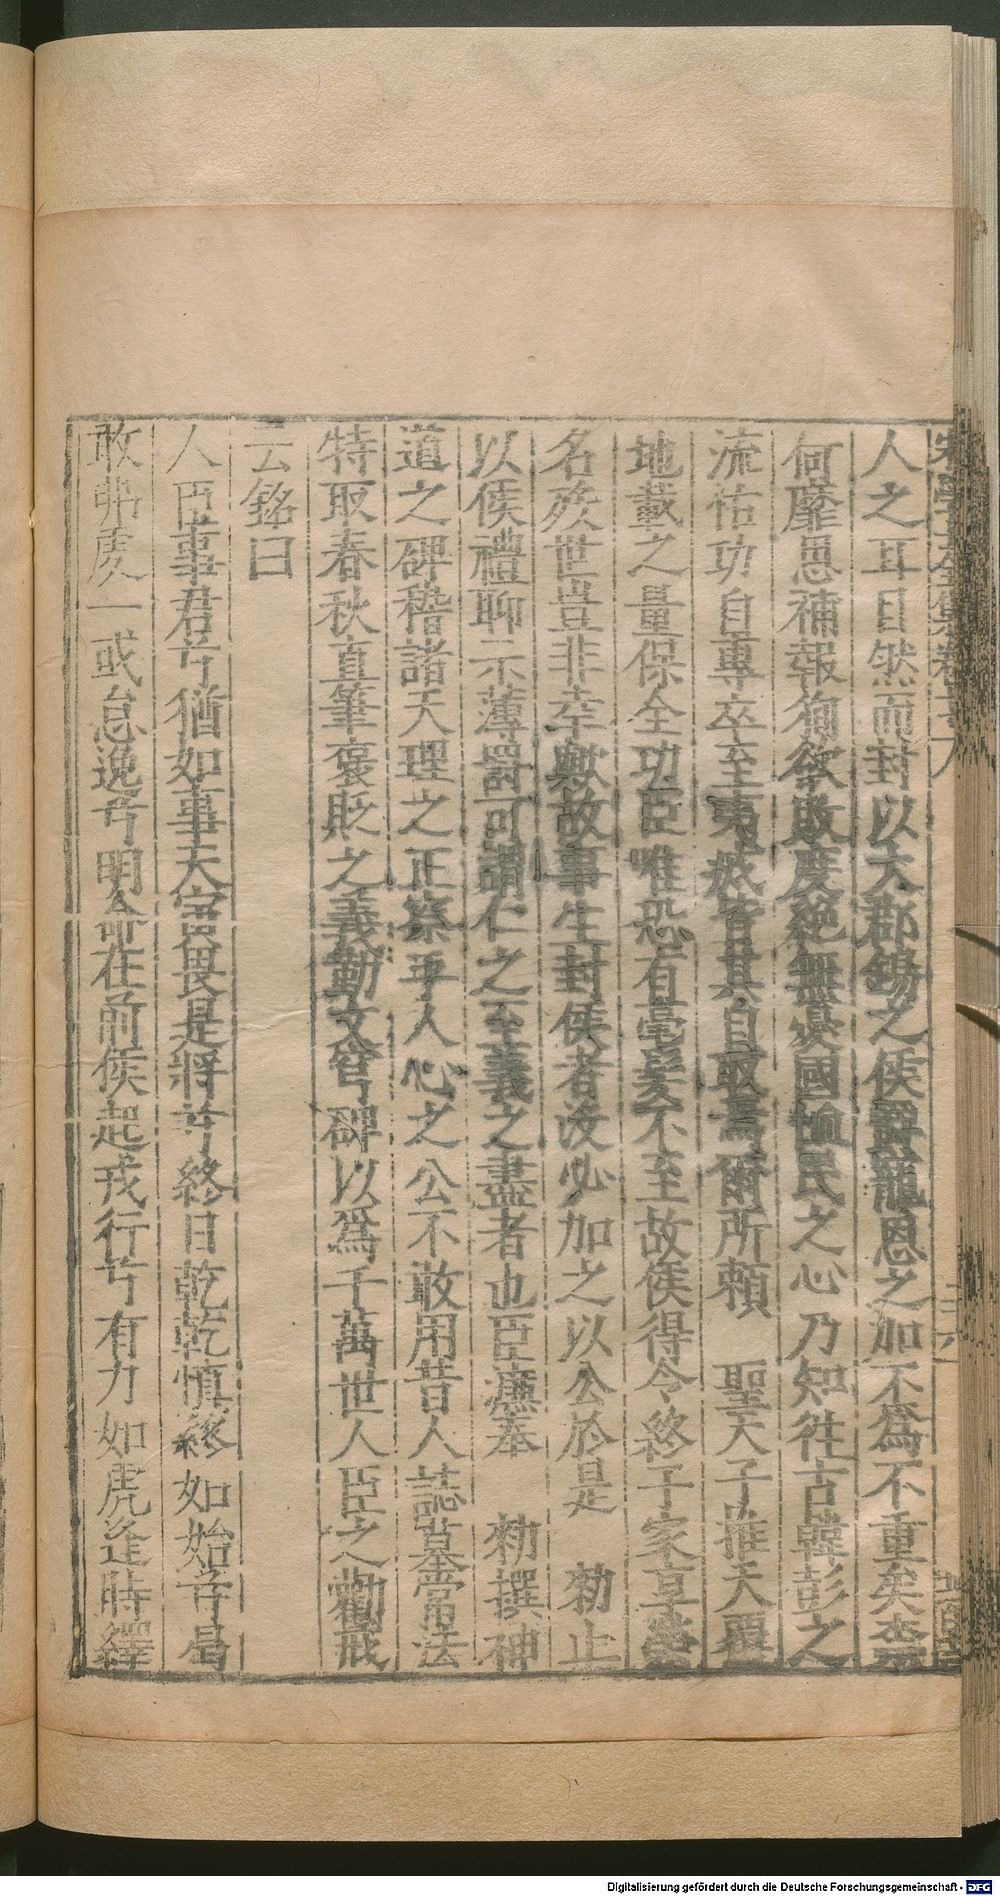 人之耳目然而封以大郡錫之侯爵寵恩之加不為不重矣柰
何靡思補報徇欲敗度絕無憂國恤民之心乃知徃古韓彭之
流祐功自專卒至夷滅皆其自取焉爾所頼　聖天子推天覆
地載之量保全功臣唯恐有毫髪不至故侯得令終于家享榮
名於世豈非幸歟故事生封侯者没必加之以公於是　勑止
以侯禮聊示薄罰可謂仁之至義之盡者也臣濂奉　勑撰神
道之碑稽諸天理之正察乎人心之公不敢用昔人誌墓常法
特取春秋直筆褒貶之義勒文穹碑以爲千萬世人臣之勸戒
云銘曰
人臣事君兮猶如事天寅畏是將兮終日乾乾慎終如始兮曷
敢弗虔一或怠逸兮明命在前侯起戎行兮有力如虎逢時繹
Digitalisierung gefördert durch die Deutsche Forschungsgemeinschaft - DFG